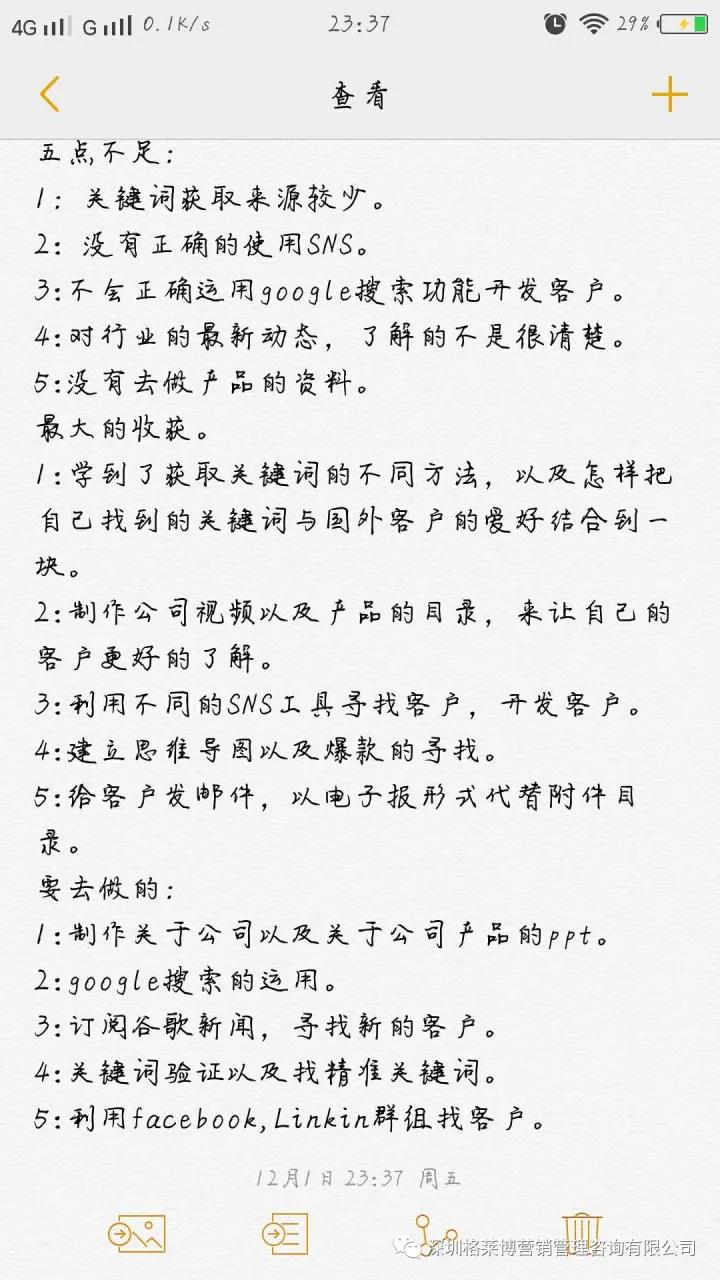 4G G 0.1K/s 23:37 29%
查看
五点不足：
1：关键词获取来源较少。
2：没有正确的使用SNS。
3:不会正确运用google搜索功能开发客户。
4:对行业的最新动态，了解的不是很清楚。
5:没有去做产品的资料。
最大的收获。
1:学到了获取关键词的不同方法，以及怎样把
自己找到的关键词与国外客户的爱好结合到一
块。
2:制作公司视频以及产品的目录，来让自己的
客户更好的了解。
3:利用不同的SNS工具寻找客户，开发客户。
4:建立思维导图以及爆款的寻找。
5:给客户发邮件，以电子报形式代替附件目
录。
要去做的：
1:制作关于公司以及关于公司产品的ppt。
2:google搜索的运用。
3:订阅谷歌新闻，寻找新的客户。
4:关键词验证以及找精准关键词。
5:利用facebook,Linkin群组找客户。
12月1日 23:37 周五
深圳格莱博营销管理咨询有限公司